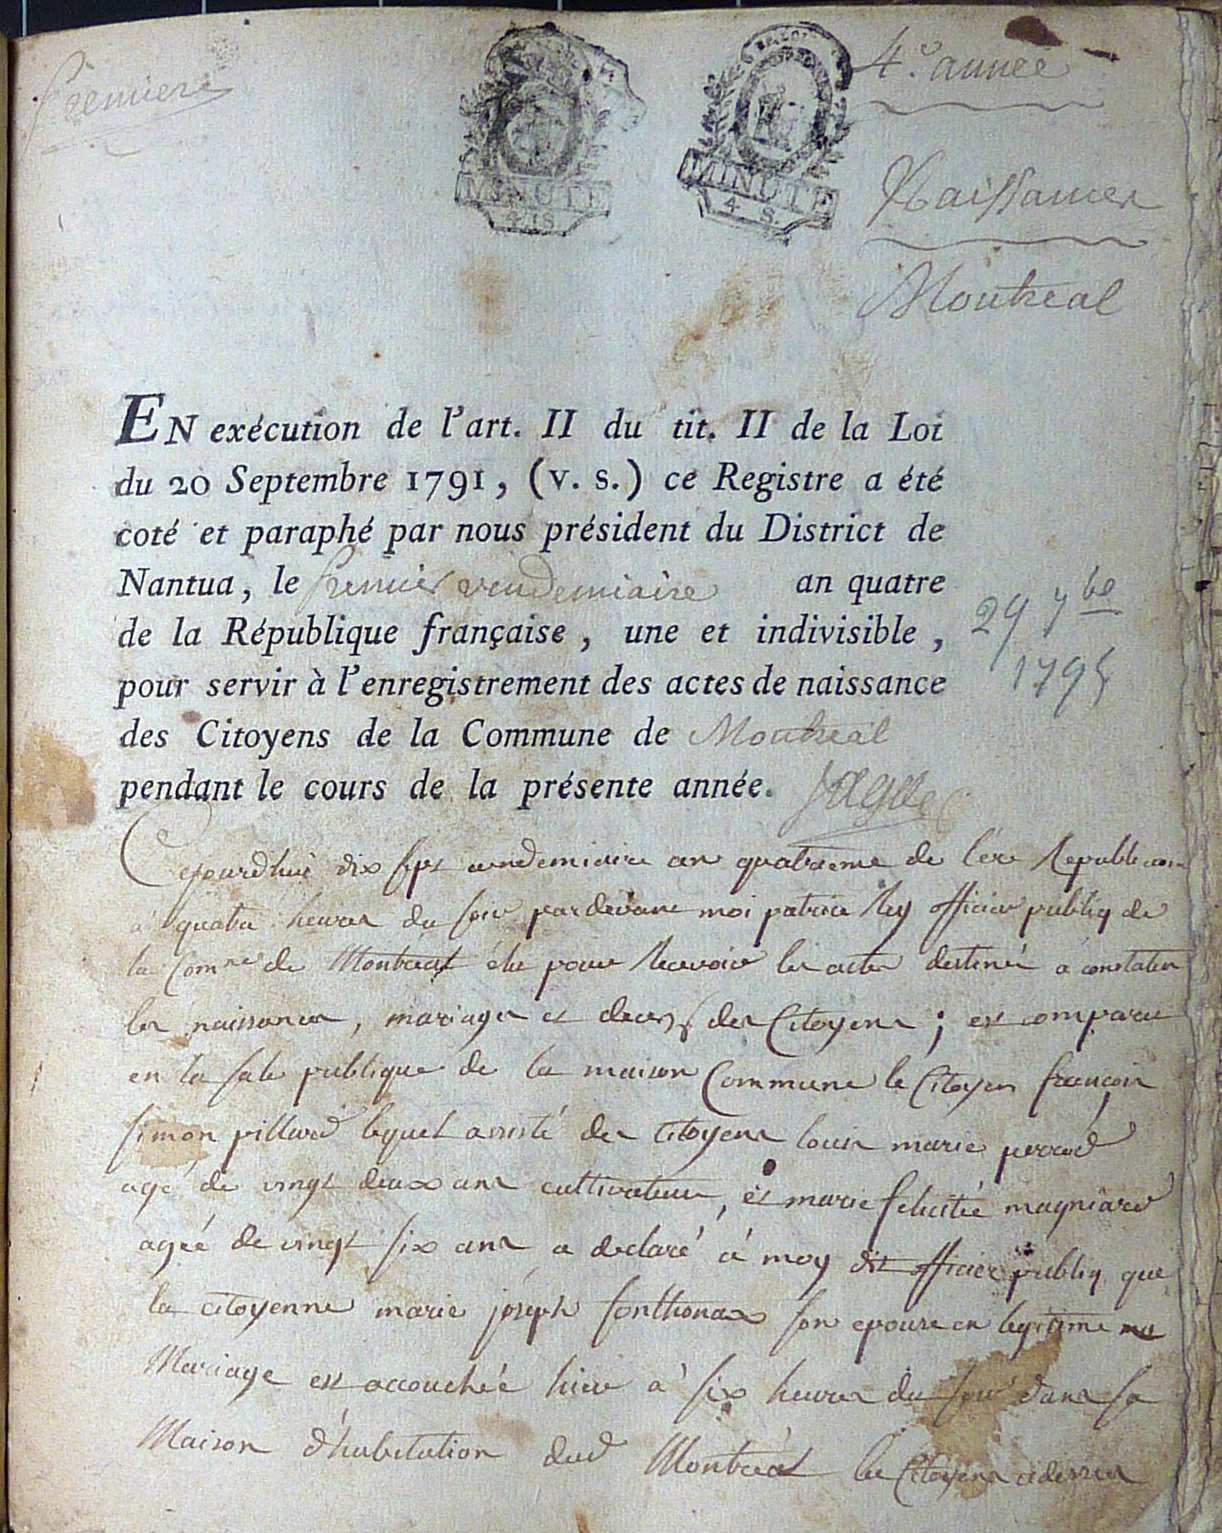 Premiere
MINUTE
4. S.
MINUTE
4 S.
4e. année
Naissances
Montreal
EN exécution de l'art. II du tit. II de la Loi
du 20 Septembre 1791, (v. s.) ce Registre a été
coté et paraphé par nous président du District de
Nantua, le premier vendemiaire an quatre
de la République française, une et indivisible,
29 7bre
1795
pour servir à l'enregistrement des actes de naissance
des Citoyens de la Commune de Montreal
pendant le cours de la présente année.
Cejourdhui dix sept vendemiaire an quatrieme de l'ere Republicaine
a quatre heures du soir pardevant moi patrice Rey officier publiq de
la Comne de Montreal élu pour Recevoir les actes destinés a constater
les naissances, mariages et deces des Citoyens ; est comparu
en la sale publique de la maison Commune le Citoyen françois
simon pillard lequel assisté des Citoyens louis marie perrod
agé de vingt deux ans cultivateur, et marie felicitée magniard
agée de vingt six ans a declaré á moy dit officier publiq que
la citoyenne marie joseph sonthonax son epouse en legitime
Mariage est accouchée hier à six heures du soir dans sa
Maison d'habitation dud Montreal les Citoyens cidessus